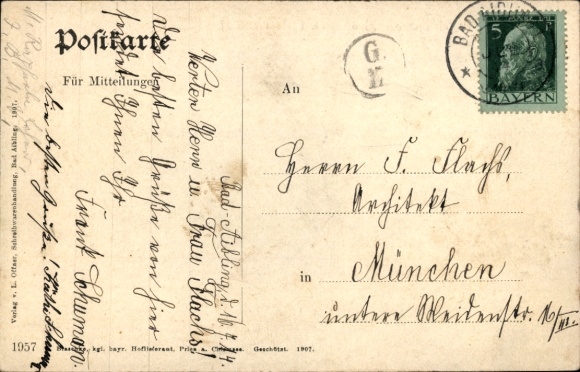 Postkarte
Für Mitteilungen
An
Herrn F. Flachs,
Architekt
in München
untere Weidenstr. 16/III.
Bad-Aibling, d. 16.7.14.
Werten Herrn u. Frau Flachs!
Die besten Grüße von hier
sendet Ihnen Ihr
Frank
die besten Grüße!
G
E
BAD AIBLING
5 5
BAYERN
Verlag v. L. Offner, Schreibwarenhandlung, Bad Aibling. 1907.
1957
kgl. bayr. Hoflieferant, Prien a. Chiemsee. Geschützt. 1907.